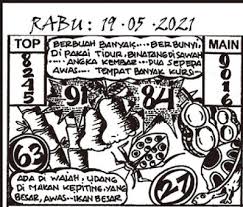 RABU : 19 · 05 · 2021
TOP
MAIN
BERBUAH BANYAK.... BERBUNYI,
DI PAKAI TIDUR, BINATANG DI SAWAH
.... ANGKA KEMBAR... DUA SEPEDA
AWAS.... TEMPAT BANYAK KURSI
91
84
63
27
ADA DI WAJAH, UDANG
DI MAKAN KEPITING, YANG
BESAR, AWAS.. IKAN BESAR